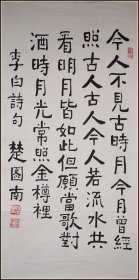 今人不見古時月今月曾經
照古人古人今人若流水共
看明月皆如此但願當歌對
酒時月光常照金樽裡
李白詩句 楚圖南